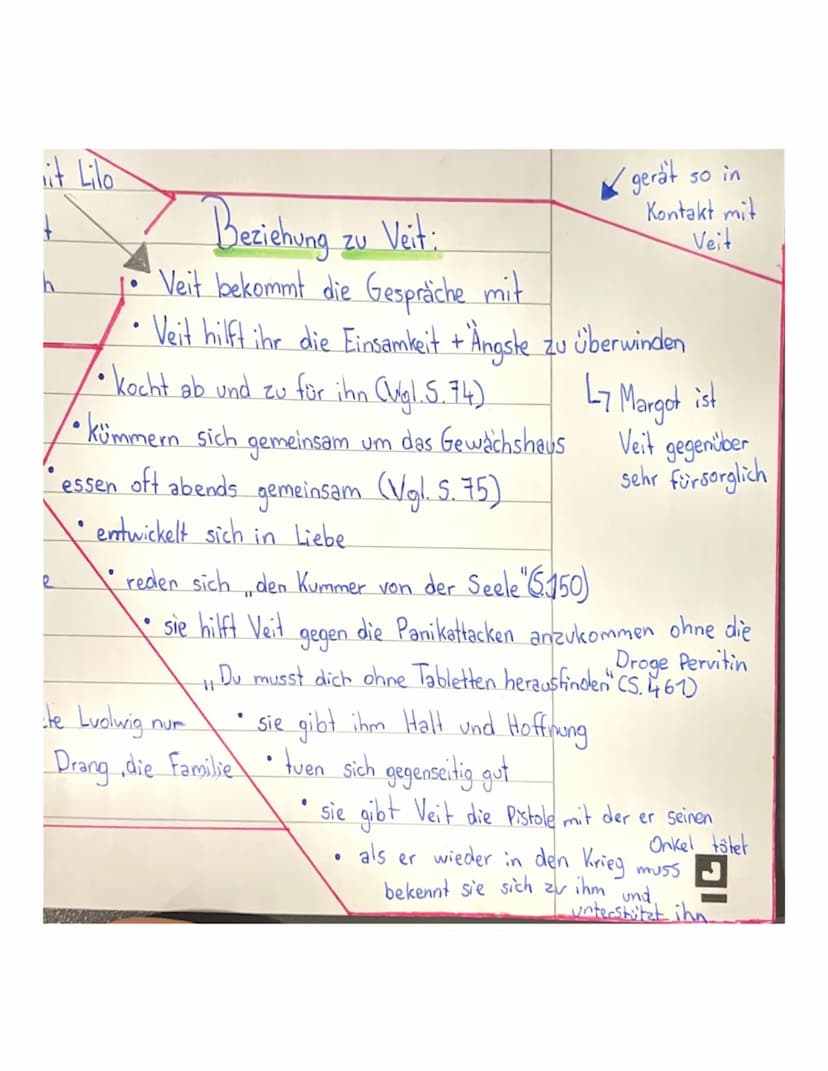 it Lilo
gerät so in
Kontakt mit
Veit
t
Beziehung zu Veit:
h
• Veit bekommt die Gespräche mit
• Veit hilft ihr die Einsamkeit + Ängste zu überwinden
• kocht ab und zu für ihn (Vgl. S. 74)
↳ Margot ist
Veit gegenüber
sehr fürsorglich
• kümmern sich gemeinsam um das Gewächshaus
• essen oft abends gemeinsam (Vgl. S. 75)
• entwickelt sich in Liebe
e
• reden sich „den Kummer von der Seele" (S.150)
• sie hilft Veit gegen die Panikattacken anzukommen ohne die
Droge Pervitin
„Du musst dich ohne Tabletten herausfinden" (S. 461)
te Ludwig nur
• sie gibt ihm Halt und Hoffnung
Drang, die Familie
• tuen sich gegenseitig gut
• sie gibt Veit die Pistole mit der er seinen
Onkel tötet
• als er wieder in den Krieg muss
bekennt sie sich zu ihm und
unterstützt ihn